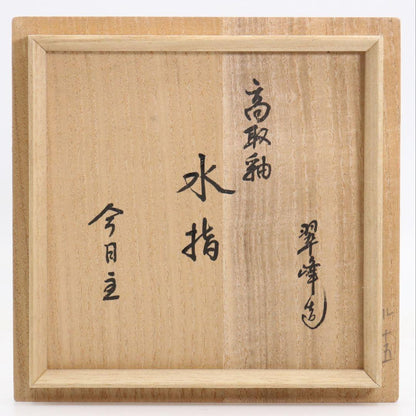 高取釉
水指
翠峰造
今日主